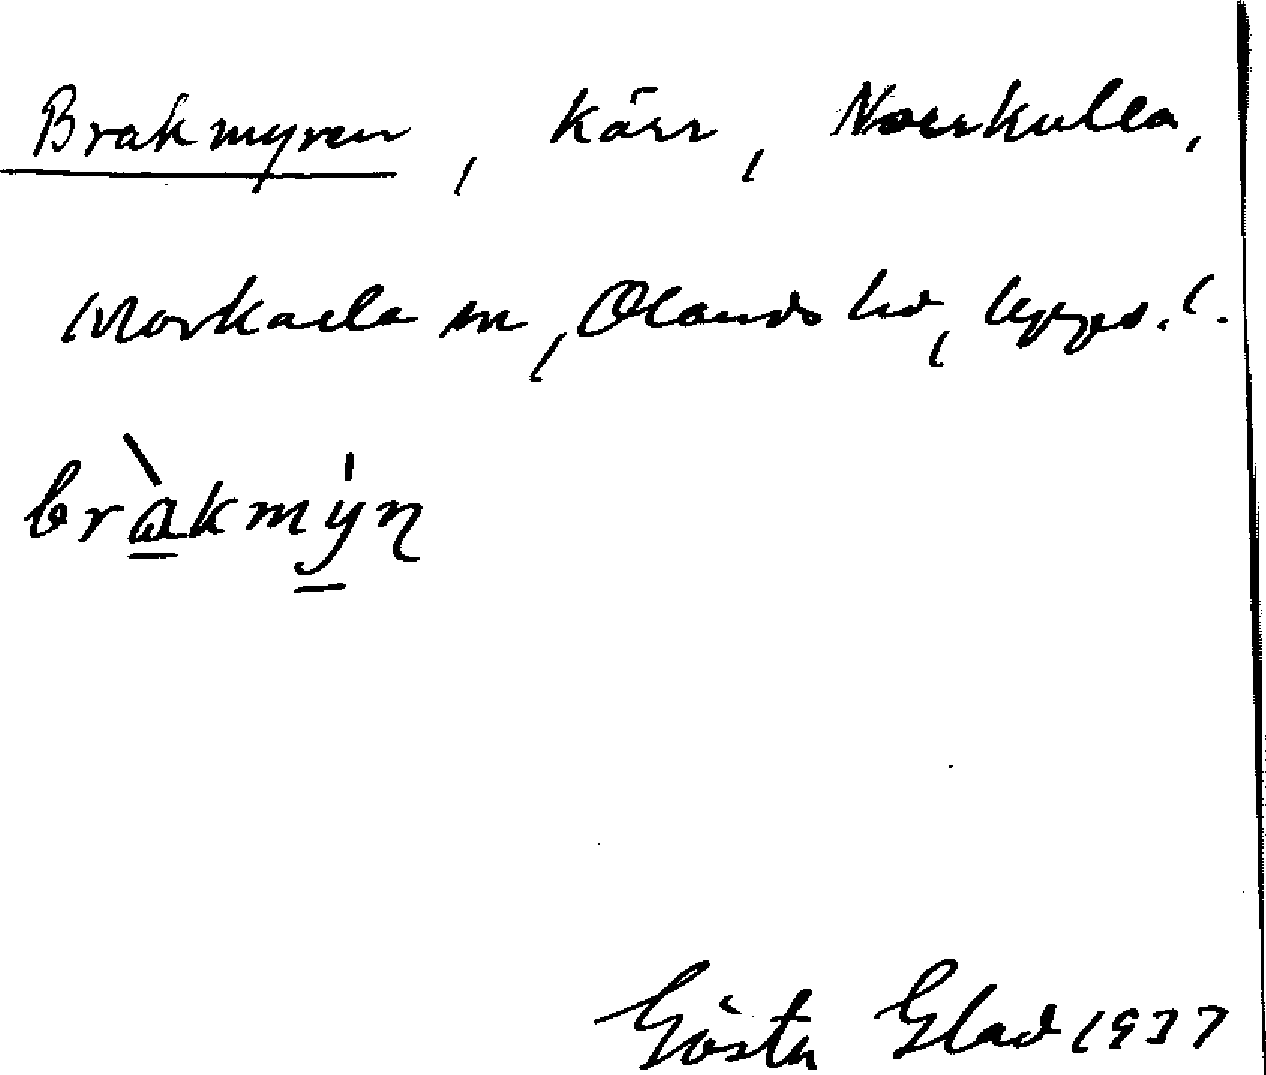 Brakmyren, kärr, Norrkulla,
Morkarla sn, Olands hd, Upps. l.
bràkmýn
Gösta Glad 1937